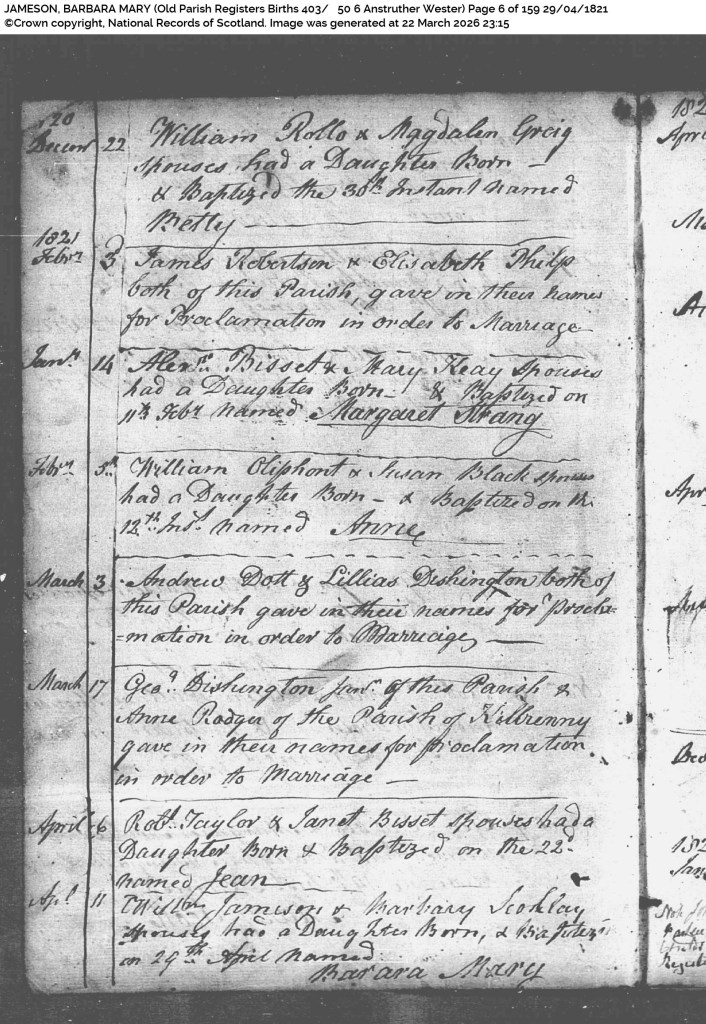 JAMESON, BARBARA MARY (Old Parish Registers Births 403/ 50 6 Anstruther Wester) Page 6 of 159 29/04/1821
©Crown copyright, National Records of Scotland. Image was generated at 22 March 2026 23:15
20
Decemr 22 William Rollo & Magdalen Greig
spouses had a Daughter Born —
& Baptized the 30th Instant named
Betty
1821
Febry 3d James Robertson & Elisabeth Philp
both of this Parish, gave in their names
for Proclamation in order to Marriage
Janry 14 Alexr Bisset & Mary Keay spouses
had a Daughter Born — & Baptized on
11th Febr named Margaret Strang
Febry 5th William Oliphont & Susan Black spouses
had a Daughter Born — & Baptized on the
12th Inst named Anne
March 3 Andrew Dott & Lillias Dishington both of
this Parish gave in their names for Procla=
=mation in order to Marriage —
March 17 Geo. Dishington Junr of this Parish &
Anne Rodger of the Parish of Kilrenny
gave in their names for proclamation
in order to Marriage —
April 6 Robt Taylor & Janet Bisset spouses had a
Daughter Born & Baptized on the 22d
named Jean
Apl 11 Willm Jameson & Barbary
spouses had a Daughter Born, & Baptizd
on 29th April named
Barara Mary
182
Apri
Apr
182
Jan